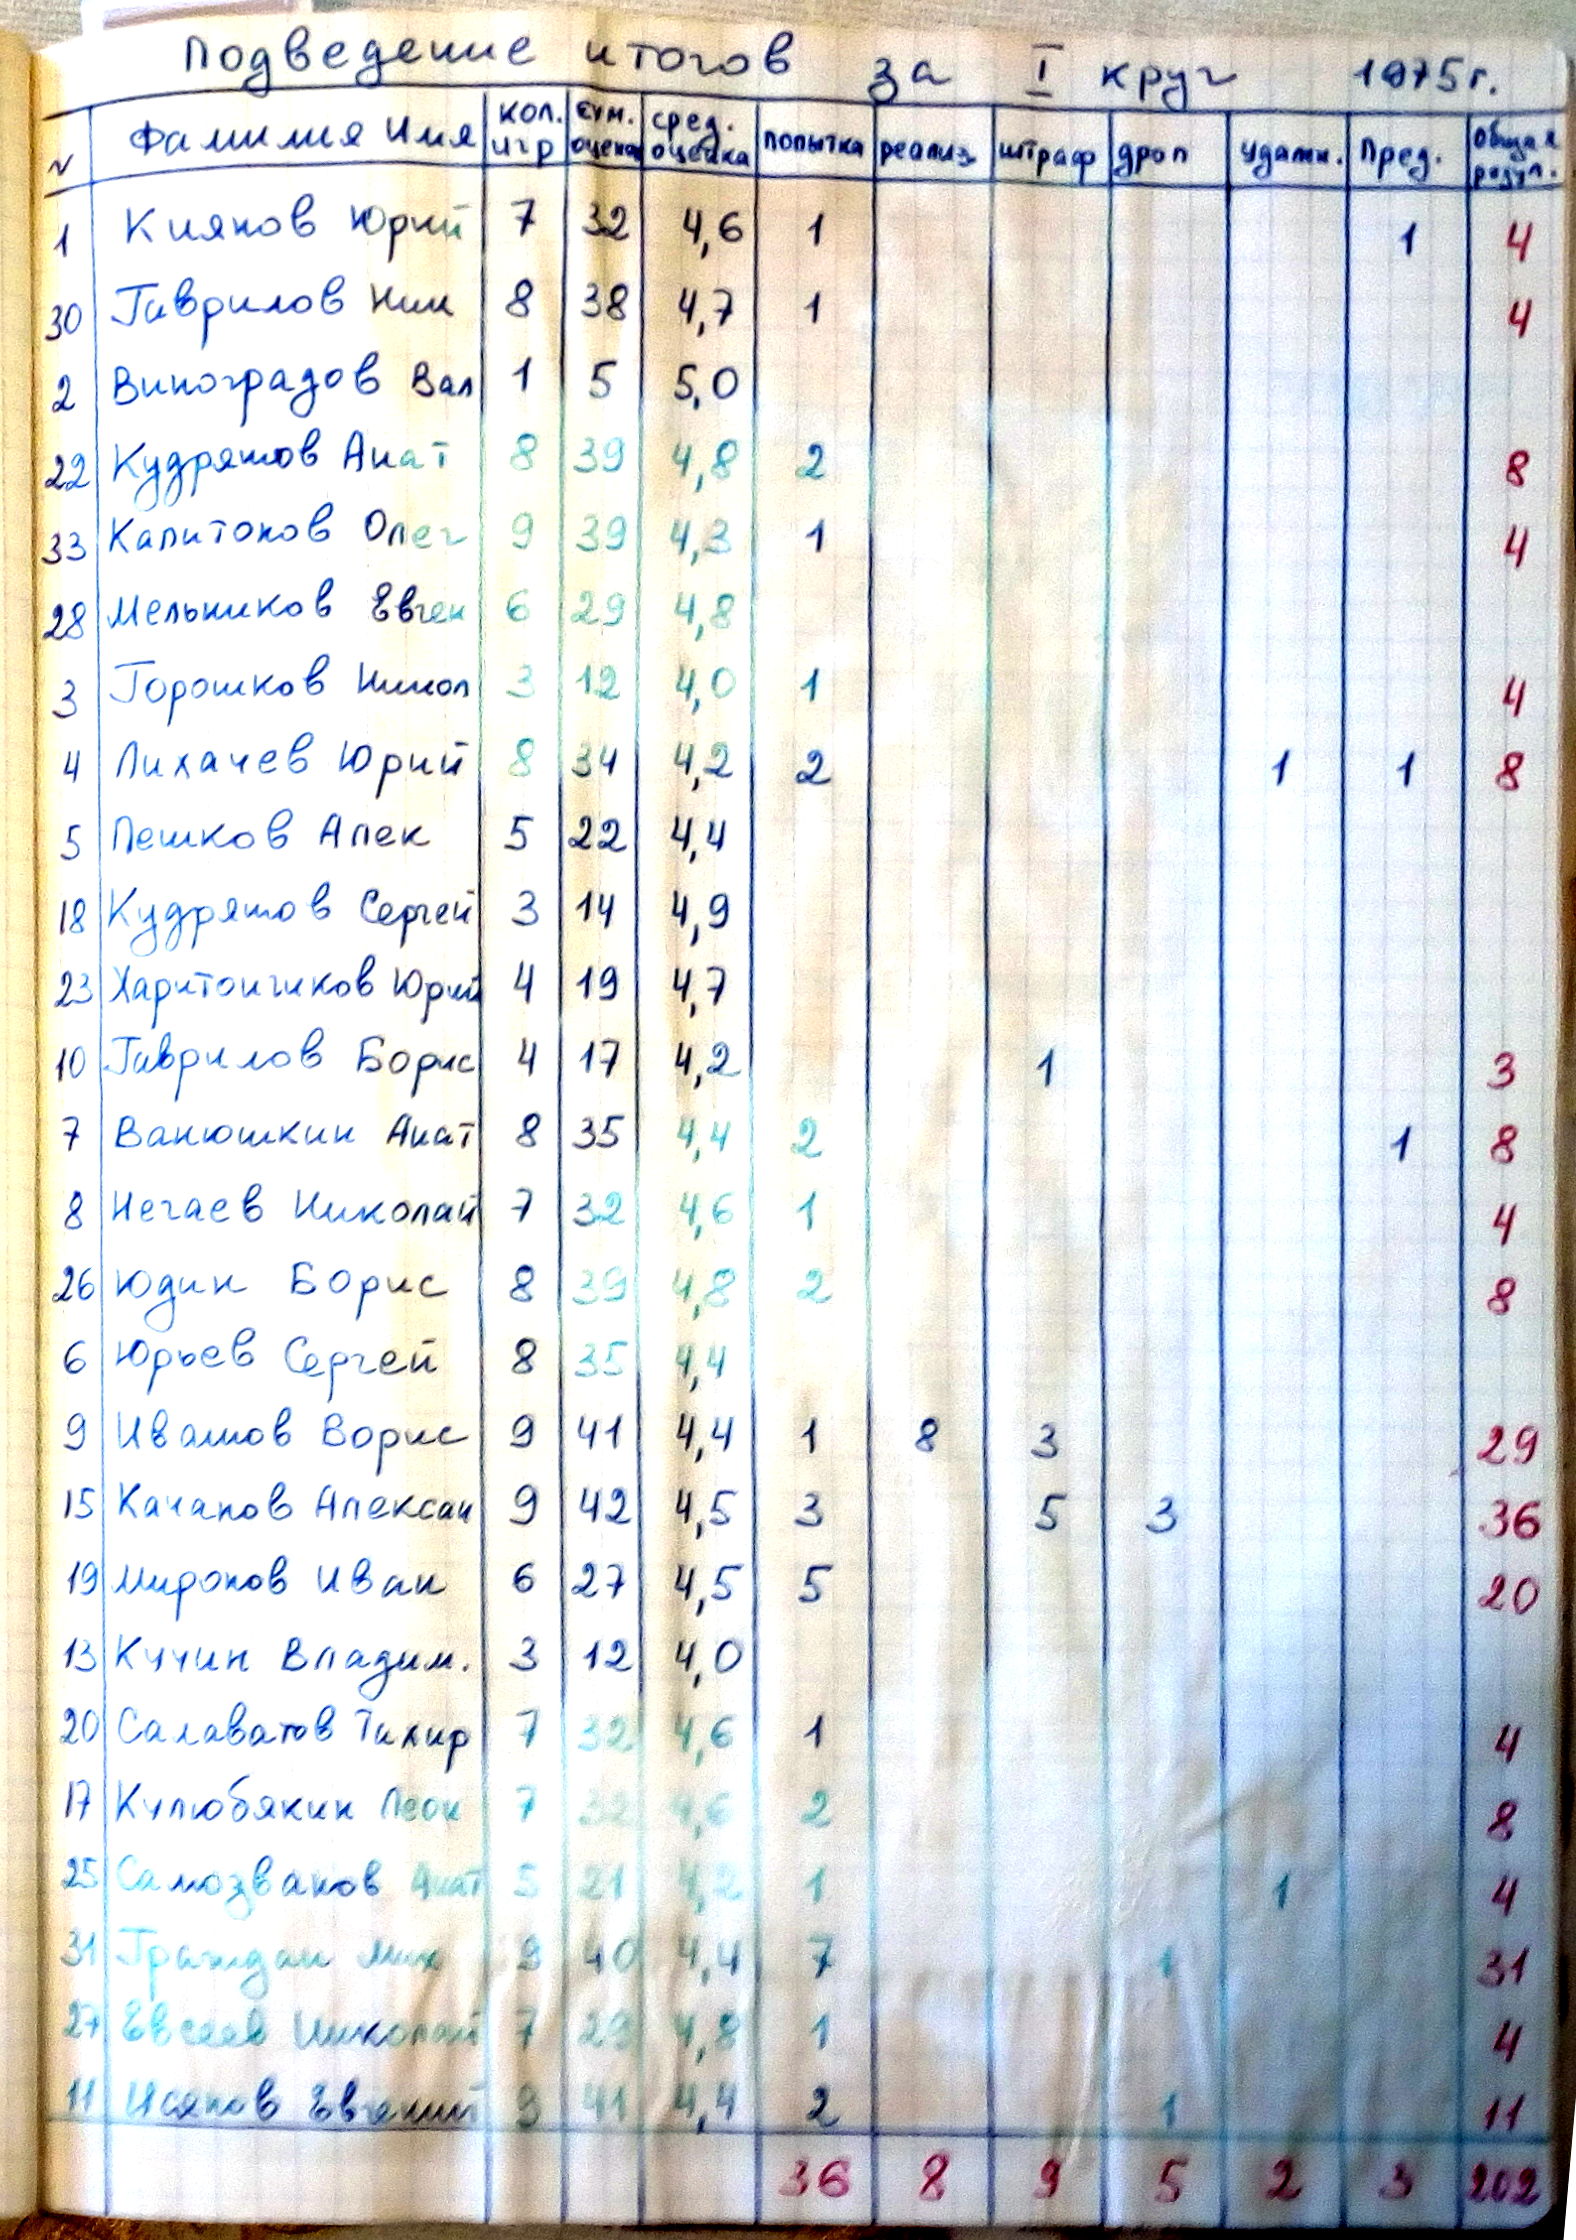 Подведение итогов за I круг 1975г.
№ Фамилия Имя кол. игр сум. оценка сред. оценка попытка реализ штраф дроп удален. Пред. Общая резул.
1 Киянов Юрий 7 32 4,6 1 1 4
30 Гаврилов Ник 8 38 4,7 1 4
2 Виноградов Вал 1 5 5,0
22 Кудряшов Анат 8 39 4,8 2 8
33 Капитонов Олег 9 39 4,3 1 4
28 Мельников Евген 6 29 4,8
3 Горошков Никол 3 12 4,0 1 4
4 Лихачев Юрий 8 34 4,2 2 1 1 8
5 Пешков Алек 5 22 4,4
18 Кудряшов Сергей 3 14 4,9
23 Харитончиков Юрий 4 19 4,7
10 Гаврилов Борис 4 17 4,2 1 3
7 Ванюшкин Анат 8 35 4,4 2 1 8
8 Негаев Николай 7 32 4,6 1 4
26 Юдин Борис 8 39 4,8 2 8
6 Юрьев Сергей 8 35 4,4
9 Ивашов Борис 9 41 4,4 1 8 3 29
15 Качанов Алексан 9 42 4,5 3 5 3 36
19 Миронов Иван 6 27 4,5 5 20
13 Кучин Владим. 3 12 4,0
20 Салаватов Тахир 7 32 4,6 1 4
17 Кулюбякин Леон 7 32 4,6 2 8
25 Самозванов Анат 5 21 4,2 1 1 4
31 Граждан Мих 9 40 4,4 7 1 31
27 Евсеев Николай 7 29 4,8 1 4
11 Исянов Евгений 9 41 4,4 2 1 11
36 8 9 5 2 3 202